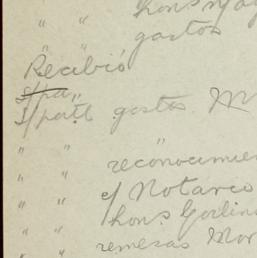 " " gastos
Recibió
s/pa,,
s/patl gastos. M
" "
" " reconocimie
" " c/ Notario
" " hons Godin
" " remesas Mor